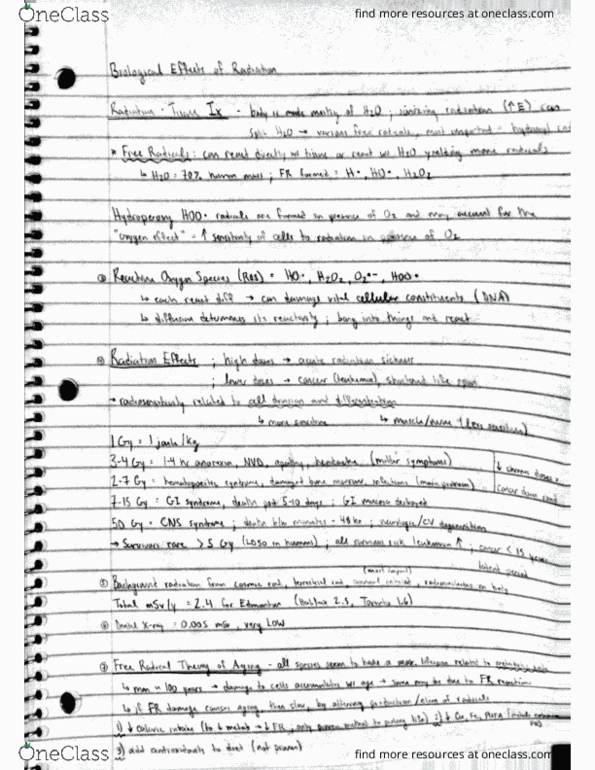 OneClass
find more resources at oneclass.com
Biological Effects of Radiation
Radiation - Tissue Ix - body is made mostly of H2O ; ionizing radiation (↑E) can
split H2O → various free radicals, most important = hydroxyl rad
* Free Radicals: can react directly w/ tissue or react w/ H2O yielding more radicals
↳ H2O = 70% human mass ; FR formed = H•, HO•, H2O2
Hydroperoxy HOO• radicals are formed in presence of O2 and may account for the
"oxygen effect" = ↑ sensitivity of cells to radiation in presence of O2
Reactive Oxygen Species (ROS) = HO•, H2O2, O2•-, HOO•
↳ each react diff → can damage vital cellular constituents (DNA)
↳ diffusion determines its reactivity ; bang into things and react
Radiation Effects ; high doses → acute radiation sickness
; lower doses → cancer (leukemia), shortened life span
→ radiosensitivity related to cell division and differentiation
↳ more sensitive ↳ muscle/nerve (less sensitive)
1 Gy = 1 joule/kg
3-4 Gy = 1-4 hr anorexia, NVD, apathy, headache (milder symptoms)
2-7 Gy = hematopoietic syndrome, damaged bone marrow, infections (main problem)
7-15 Gy = GI syndrome, death 5-10 days ; GI mucosa destroyed
50 Gy = CNS syndrome ; death b/w minutes - 48 hr ; neurologic/CV degeneration
→ Survivors rare > 5 Gy (LD50 in humans) ; all survivors risk leukemia ↑ ; cancer < 15 years
latent period
Background radiation from cosmic rad, terrestrial rad, radionuclides in body
(most import)
Total mSv/y = 2.4 for Edmonton (Halifax 2.5, Toronto 1.6)
Dental X-ray = 0.005 mSv, very low
Free Radical Theory of Aging - all species seem to have a max. lifespan related to metabolic rate
↳ man ≈ 100 years → damage to cells accumulates w/ age → some may be due to FR reactions
↳ if FR damage causes aging, then slow, by altering production/elim of radicals
1) ↓ caloric intake (to ↓ metab → ↓ FR ; only proven method to prolong life) 2) ↓ Cu, Fe,
3) add antioxidants to diet (not proven)
OneClass
find more resources at oneclass.com